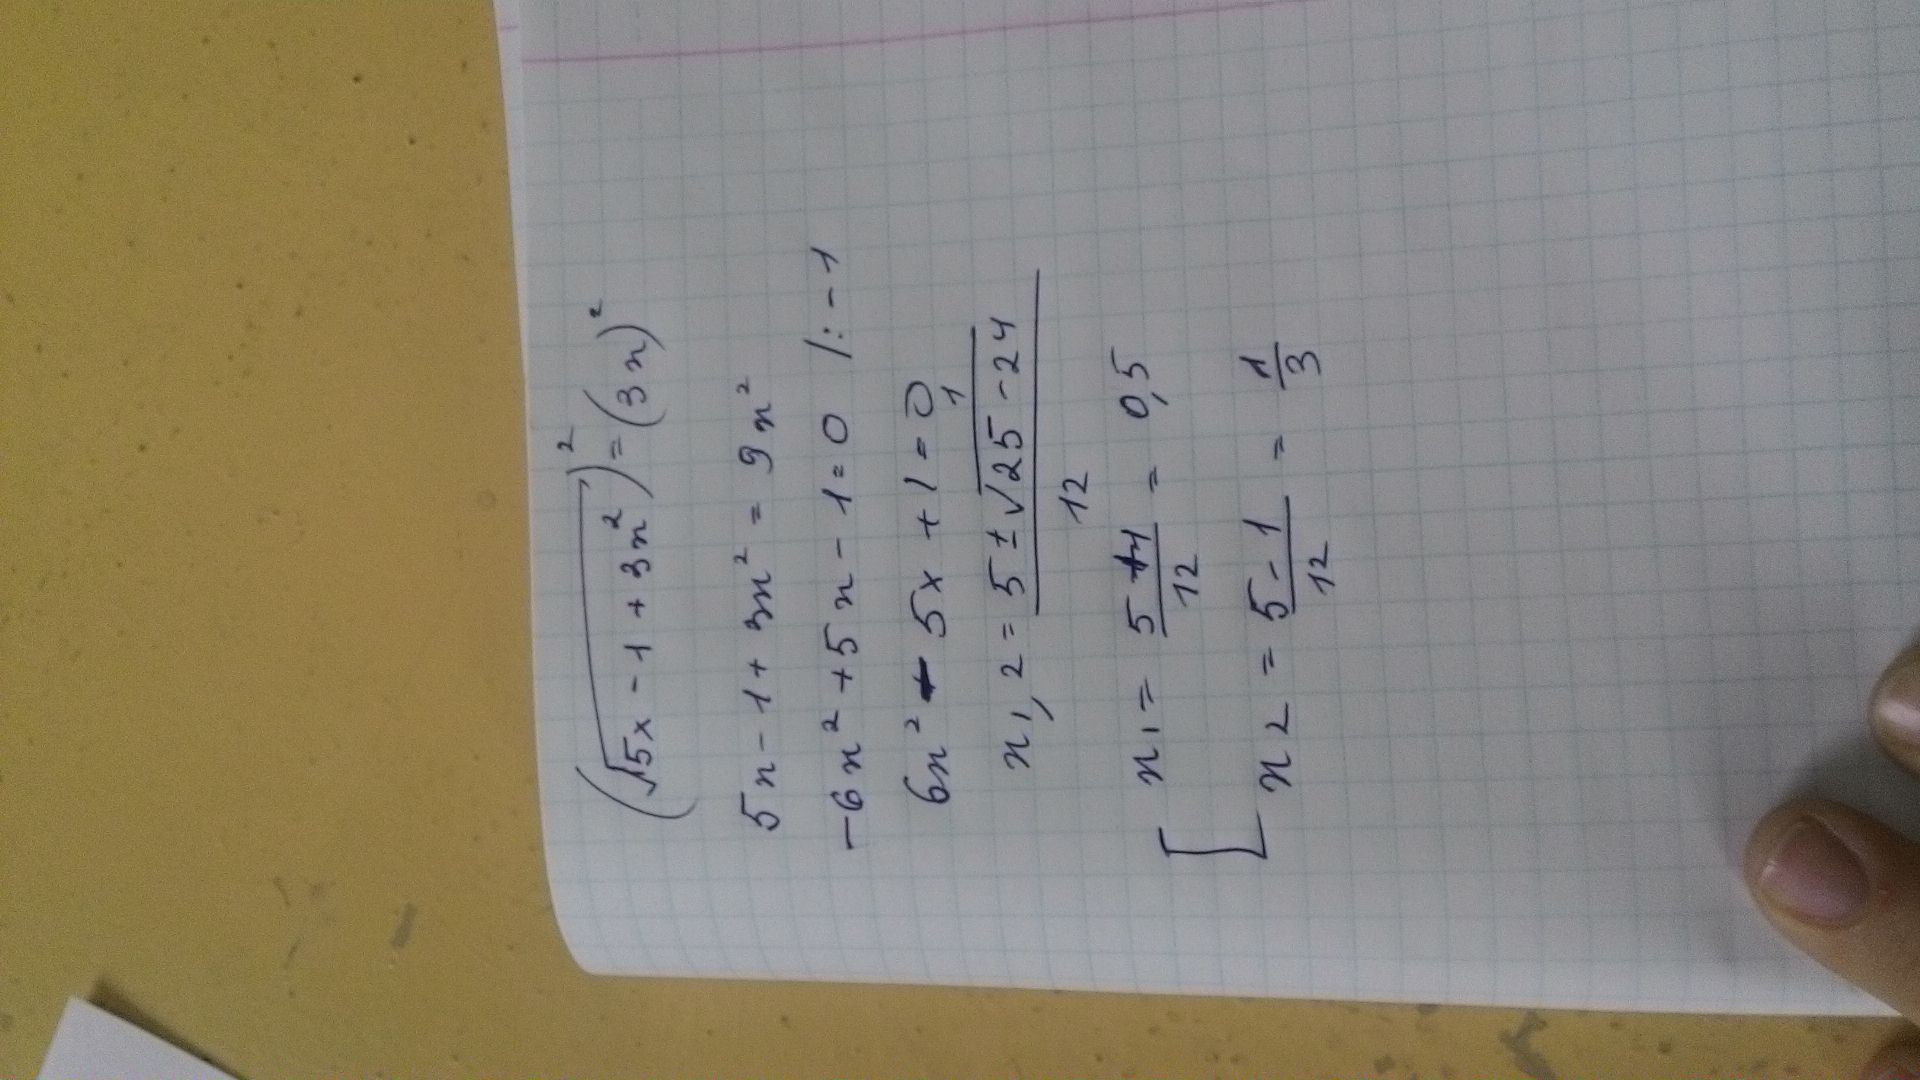 (√5x - 1 + 3x²)² = (3x)²
5x - 1 + 3x² = 9x²
-6x² + 5x - 1 = 0 /: -1
6x² - 5x + 1 = 0
x1,2 = 5 ± √25 - 24 1
12
x1 = 5 + 1 / 12 = 0,5
x2 = 5 - 1 / 12 = 1/3